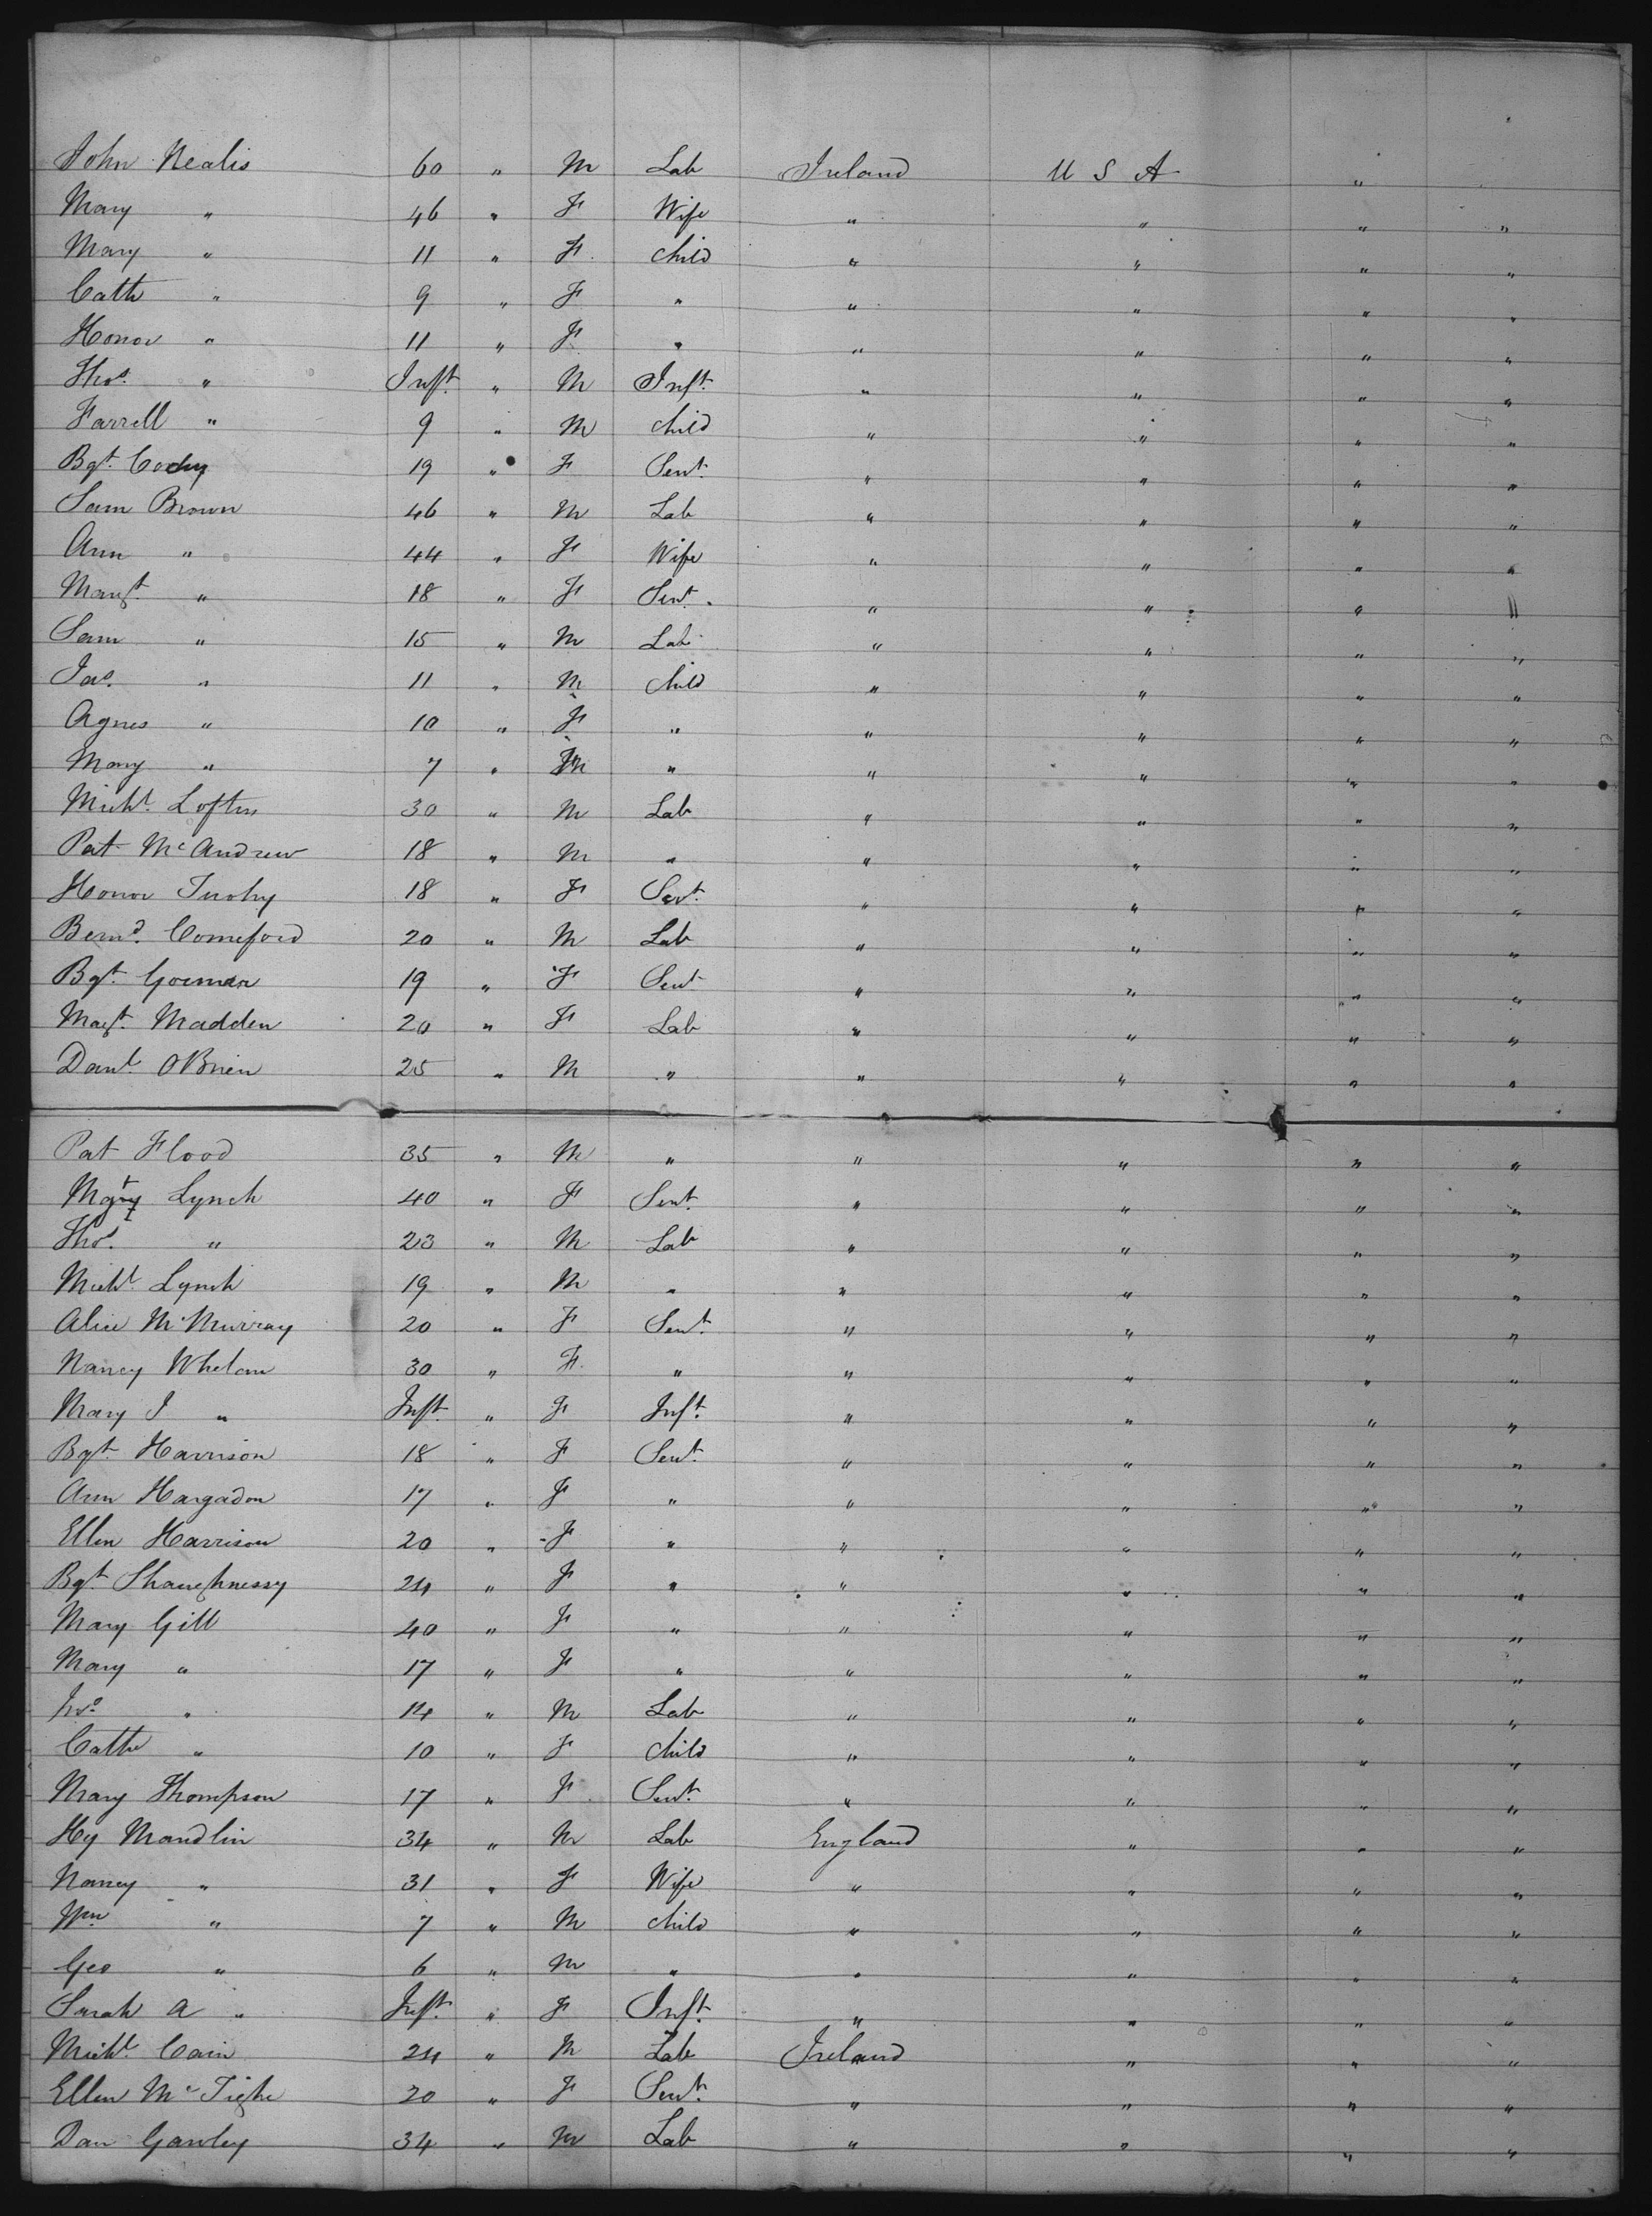 John Nealis 60 " M Lab Ireland U S A "
Mary " 46 " F Wife " " " "
Mary " 11 " F child " " " "
Cath " 9 " F " " " " "
Honor " 11 " F " " " " "
Thos. " Inft. " M Inft. " " " "
Farrell " 9 " M child " " " "
Bgt. Cody 19 " F Sevt. " " " "
Sam Brown 46 " M Lab " " " "
Ann " 44 " F Wife " " " "
Margt. " 18 " F Sevt. " " " "
Sam " 15 " M Lab " " " "
Jas. " 11 " M child " " " "
Agnes " 10 " F " " " " "
Mary " 7 " " " " " "
Michl. Loftus 30 " M Lab " " " "
Pat McAndrew 18 " M " " " " "
Honor Tuohy 18 " F Sevt. " " " "
Bernd. Comeford 20 " M Lab " " " "
Bgt. Gorman 19 " F Sevt " " " "
Margt. Madden 20 " F Lab " " " "
Danl. OBrien 25 " M " " " " "
Pat Flood 35 " M " " " " "
Lynch 40 " F Sevt. " " " "
Thos. " 23 " M Lab " " " "
Michl. Lynch 19 " M " " " " "
Alice McMurray 20 " F Sevt. " " " "
Nancy Whelan 30 " F " " " " "
Mary J " Inft. " F Inft. " " " "
Bgt. Harrison 18 " F Sevt. " " " "
Ann Hargadon 17 " F " " " " "
Ellen Harrison 20 " F " " " " "
Bgt. Shaughnessy 24 " F " " " " "
Mary Gill 40 " F " " " " "
Mary " 17 " F " " " " "
Jno. " 14 " M Lab " " " "
Cath " 10 " F child " " " "
Mary Thompson 17 " F Sevt. " " " "
Hy Mandlin 34 " M Lab England " " "
Nancy " 31 " F Wife " " " "
Wm " 7 " M child " " " "
Geo " 6 " M " " " " "
Sarah A " Inft. " F Inft. " " " "
Michl. Cain 24 " M Lab Ireland " " "
Ellen McTighe 20 " F Sevt. " " " "
Dan Ganley 34 " M Lab " " " "